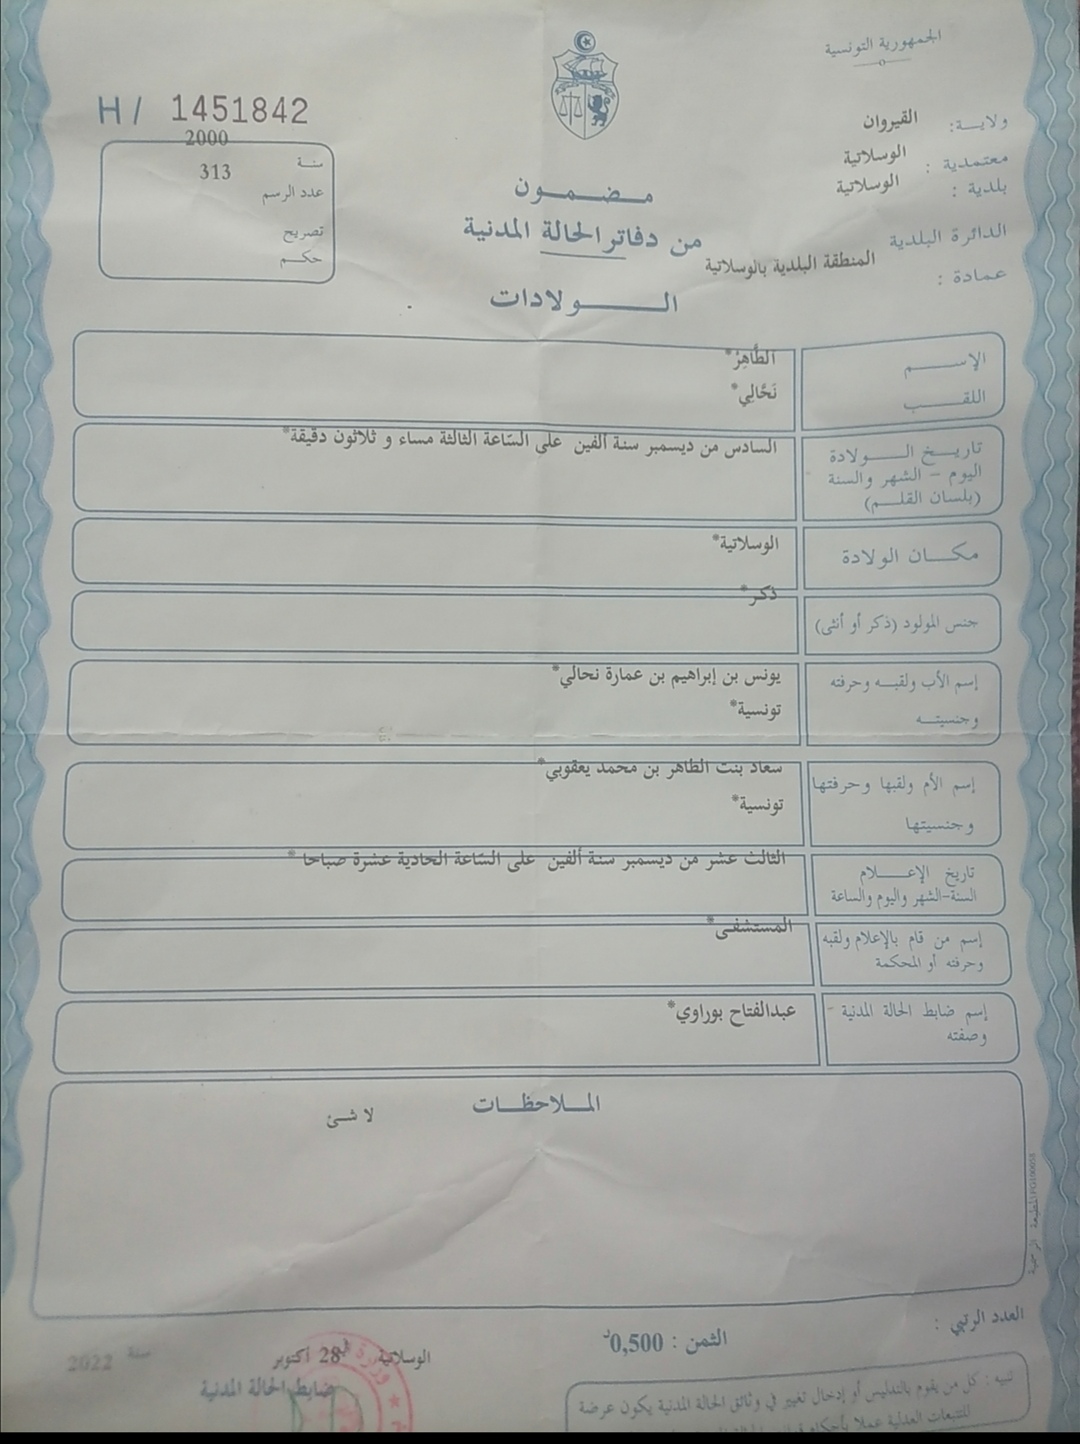 الجمهورية التونسية
H/ 1451842
ولايـة: القيروان
معتمدية : الوسلاتية
بلدية : الوسلاتية
الدائرة البلدية
المنطقة البلدية بالوسلاتية
عمادة :
2000
سنة
313
عدد الرسم
تصريح
حكـم
مـضـمـون
من دفاتر الحالة المدنية
الـولادات
الإسـم
الطَّاهِرْ*
اللقـب
نَحَّالِي*
تاريـخ الـولادة
اليوم - الشهر والسنة
(بلسان القلـم)
السادس من ديسمبر سنة ألفين على السّاعة الثالثة مساء و ثلاثون دقيقة*
مكـان الولادة
الوسلاتية*
جنس المولود (ذكر أو أنثى)
ذكر*
إسم الأب ولقبـه وحرفته
وجنسيتـه
يونس بن إبراهيم بن عمارة نحالي*
تونسية*
إسم الأم ولقبها وحرفتها
وجنسيتها
سعاد بنت الطاهر بن محمد يعقوبي*
تونسية*
تاريخ الإعـلام
السنة-الشهر واليوم والساعة
الثالث عشر من ديسمبر سنة ألفين على السّاعة الحادية عشرة صباحا *
إسم من قام بالإعلام ولقبه
وحرفته أو المحكمة
المستشفى*
إسم ضابط الحالة المدنية -
وصفته
عبدالفتاح بوراوي*
المـلاحظـات
لا شئ
المطبعة الرسمية
العدد الرتبي :
الثمن : 0,500د
الوسلاتية 28 أكتوبر سنة 2022
ضابط الحالة المدنية
تنبيه : كل من يقوم بالتدليس أو إدخال تغيير في وثائق الحالة المدنية يكون عرضة
للتتبعات العدلية عملا بأحكام